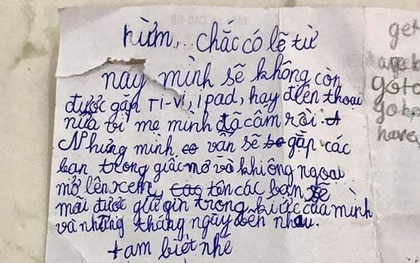 hừm... chắc có lẽ từ
nay mình sẽ không còn
được gặp Ti-vi, ipad, hay điên thoai
nữa bi mẹ mình đã câm rồi.
Nhưng mình vẫn sẽ gặp các
bạn trong giấc mơ và không ngoai
mở lên xem, tôn các bạn sẽ
mãi được giữ gìn trong kí ức của mình
và những tháng ngày bên nhau.
tam biêt nhé
ger
goto
go h
have